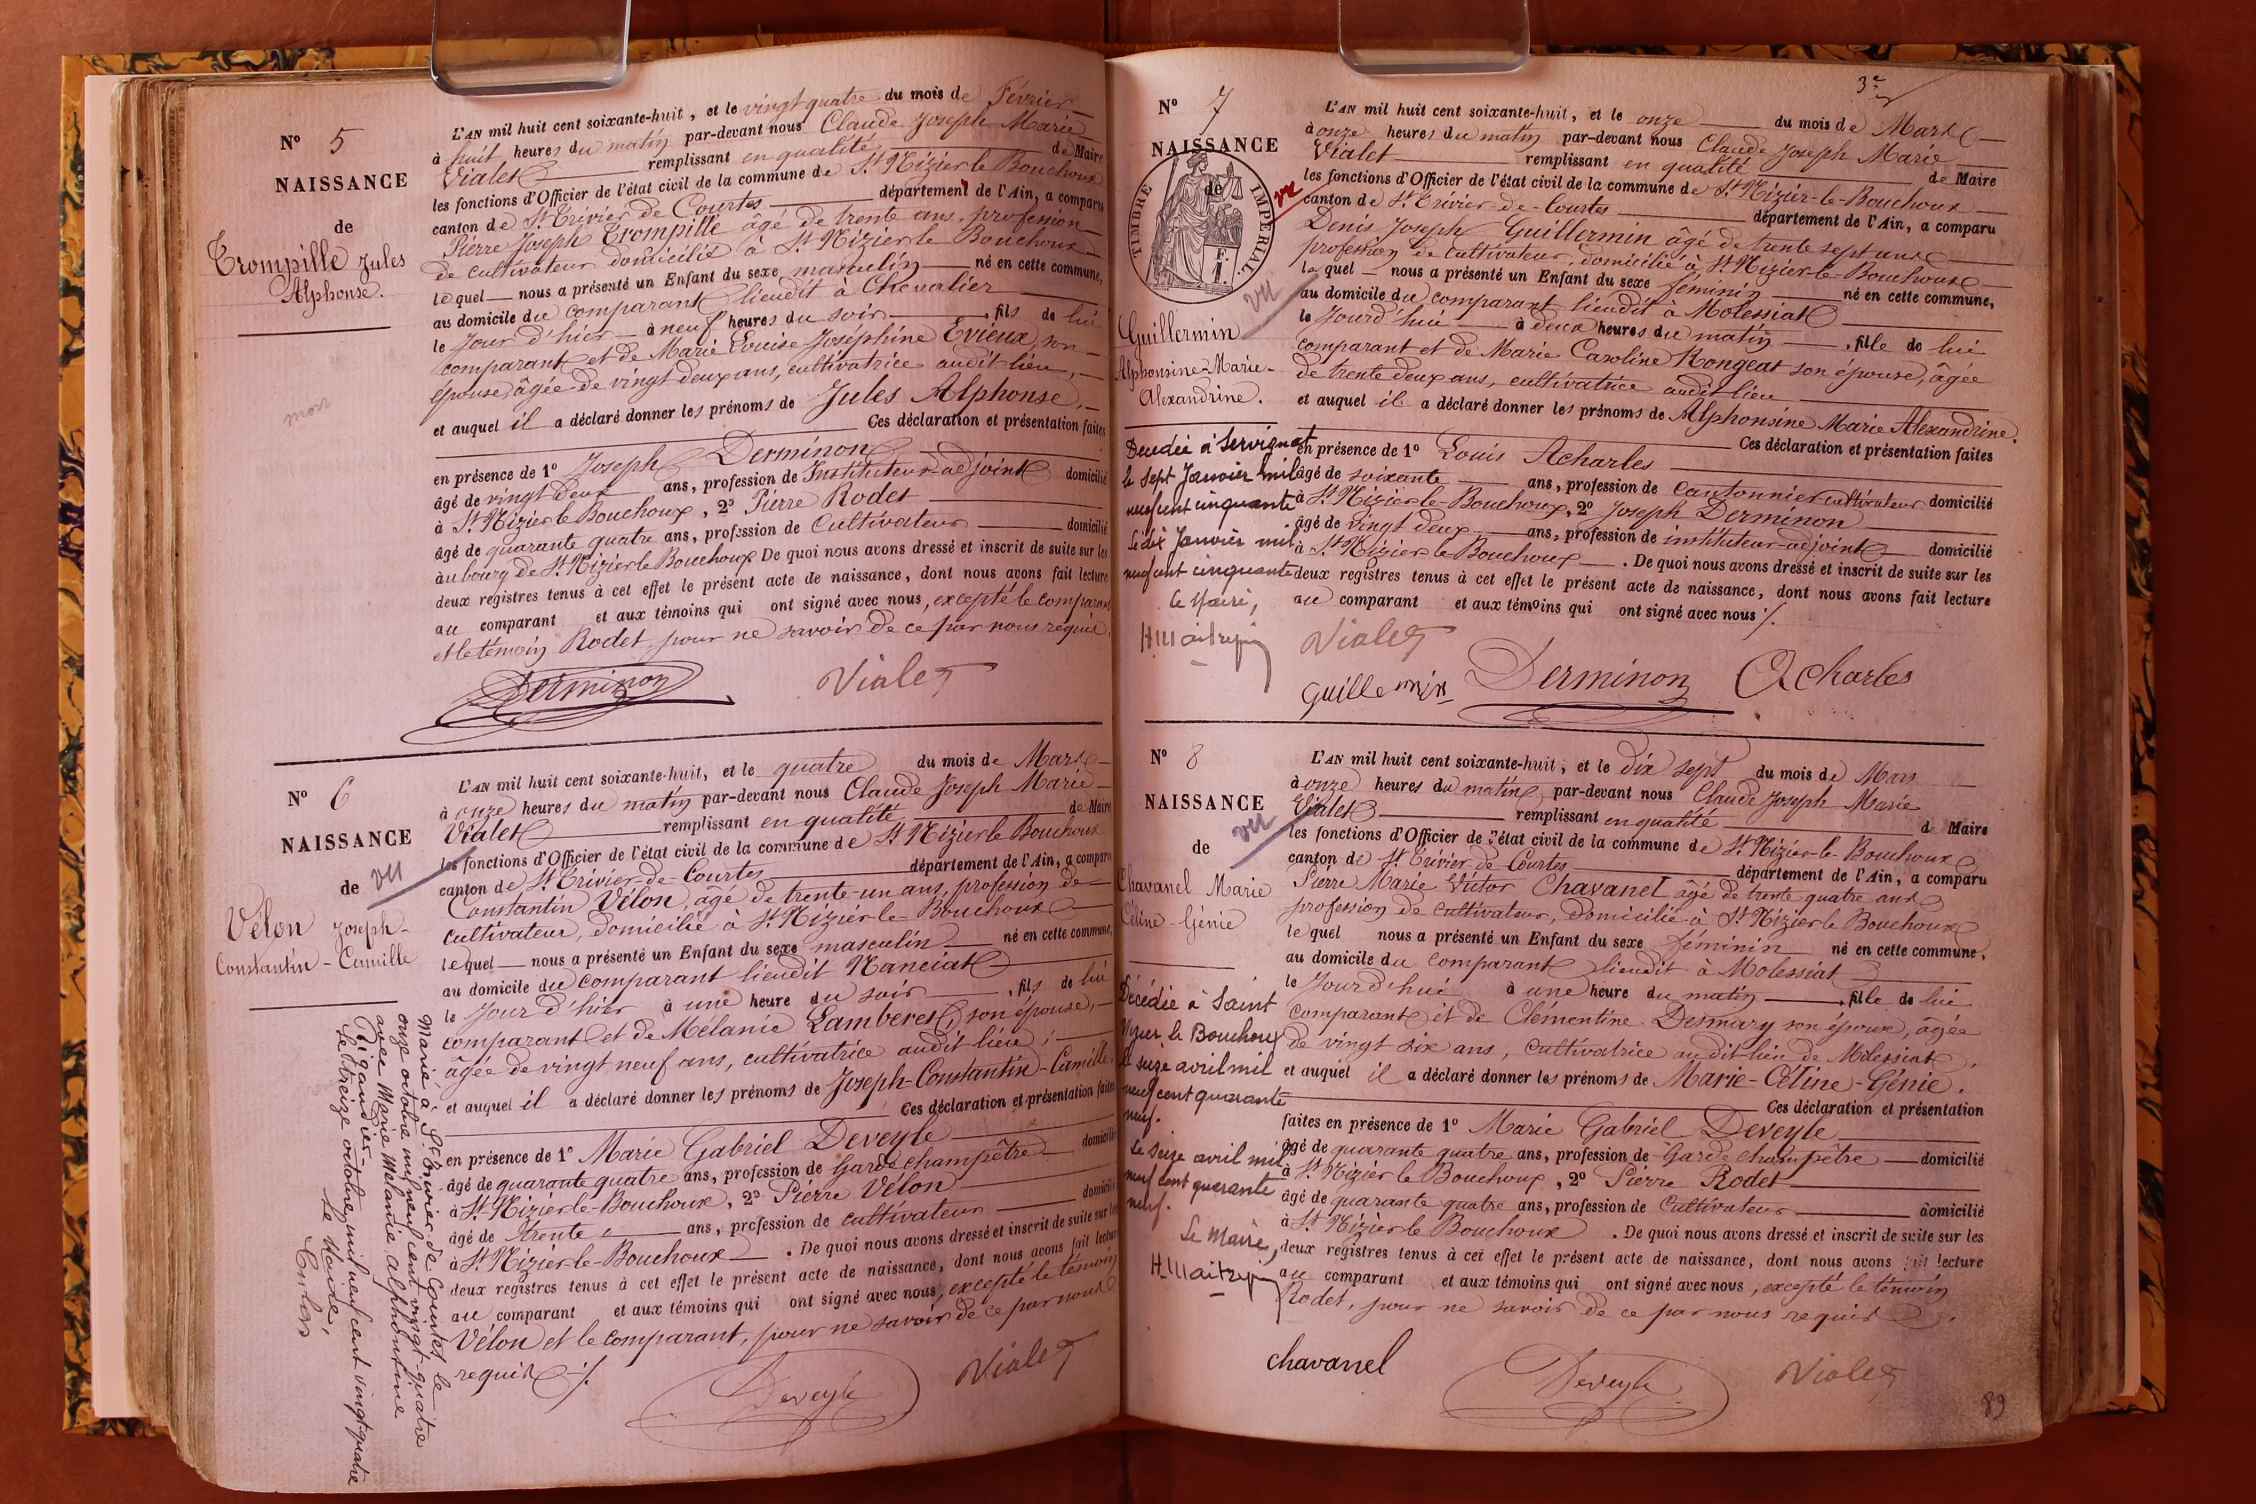 N° 5
NAISSANCE
de
Trompille Jules
Alphonse.
mort
L'AN mil huit cent soixante-huit, et le vingt quatre du mois de Février
à huit heures du matin par-devant nous Claude Joseph Marie
Vialet remplissant en qualité de Maire
les fonctions d'Officier de l'état civil de la commune de St Nizier le Bouchoux
canton de St Trivier de Courtes département de l'Ain, a comparu
Pierre Joseph Trompille âgé de trente ans, profession
de cultivateur domicilié à St Nizier le Bouchoux
lequel nous a présenté un Enfant du sexe masculin né en cette commune,
au domicile du comparant lieudit à Chevalier
le jour d'hier à neuf heures du soir, fils de lui
comparant et de Marie Louise Joséphine Evieux, son
épouse, âgée de vingt deux ans, cultivatrice audit lieu,
et auquel il a déclaré donner les prénoms de Jules Alphonse,
Ces déclaration et présentation faites
en présence de 1° Joseph Derminon
âgé de vingt deux ans, profession de Instituteur adjoint domicilié
à St Nizier le Bouchoux, 2° Pierre Rodet
âgé de quarante quatre ans, profession de Cultivateur domicilié
au bourg de St Nizier le Bouchoux De quoi nous avons dressé et inscrit de suite sur les
deux registres tenus à cet effet le présent acte de naissance, dont nous avons fait lecture
au comparant et aux témoins qui ont signé avec nous, excepté le comparant
et le témoin Rodet, pour ne savoir de ce par nous requis.
Derminon Vialet
N° 6
NAISSANCE
de vu
Vélon Joseph-
Constantin-Camille
Marié à St Trivier de Courtes le
onze octobre mil neuf cent vingt-quatre
avec Marie Mélanie Alphonsine
Rigaudier.
Le treize octobre mil neuf cent vingt-quatre
Le Maire,
L'AN mil huit cent soixante-huit, et le quatre du mois de Mars
à onze heures du matin par-devant nous Claude Joseph Marie
Vialet remplissant en qualité de Maire
les fonctions d'Officier de l'état civil de la commune de St Nizier le Bouchoux
canton de St Trivier-de-Courtes département de l'Ain, a comparu
Constantin Vélon, âgé de trente-un ans, profession de
cultivateur, domicilié à St Nizier-le-Bouchoux
lequel nous a présenté un Enfant du sexe masculin né en cette commune,
au domicile du comparant lieudit Manciat
le jour d'hier à une heure du soir, fils de lui
comparant et de Mélanie Lamberet, son épouse,
âgée de vingt neuf ans, cultivatrice audit lieu;
et auquel il a déclaré donner les prénoms de Joseph-Constantin-Camille
Ces déclaration et présentation faites
en présence de 1° Marie Gabriel Deveyle
âgé de quarante quatre ans, profession de Garde champêtre domicilié
à St Nizier-le-Bouchoux, 2° Pierre Vélon
âgé de trente ans, profession de cultivateur domicilié
à St Nizier-le-Bouchoux. De quoi nous avons dressé et inscrit de suite sur les
deux registres tenus à cet effet le présent acte de naissance, dont nous avons fait lecture
au comparant et aux témoins qui ont signé avec nous, excepté le témoin
Vélon et le comparant, pour ne savoir de ce par nous
requis ./.
Deveyle Vialet
3e
N° 7
NAISSANCE
de
TIMBRE IMPÉRIAL.
vu
vu
Guillermin
Alphonsine-Marie-
Alexandrine.
Décédée à Servignat
le sept Janvier mil
neuf cent cinquante
Le dix Janvier mil
neuf cent cinquante
Le Maire,
L'AN mil huit cent soixante-huit, et le onze du mois de Mars
à onze heures du matin par-devant nous Claude Joseph Marie
Vialet remplissant en qualité de Maire
les fonctions d'Officier de l'état civil de la commune de St Nizier-le-Bouchoux
canton de St Trivier-de-Courtes département de l'Ain, a comparu
Denis Joseph Guillermin âgé de trente sept ans
profession de cultivateur, domicilié à St Nizier-le-Bouchoux
lequel nous a présenté un Enfant du sexe féminin né en cette commune,
au domicile du comparant lieudit à Molessiat
le Jourd'hui à deux heures du matin, fille de lui
comparant et de Marie Caroline Rongeat son épouse, âgée
de trente deux ans, cultivatrice audit lieu
et auquel il a déclaré donner les prénoms de Alphonsine Marie Alexandrine.
Ces déclaration et présentation faites
en présence de 1° Louis Acharles
âgé de soixante ans, profession de cantonnier cultivateur domicilié
à St Nizier-le-Bouchoux, 2° Joseph Derminon
âgé de vingt deux ans, profession de instituteur-adjoint domicilié
à St Nizier le Bouchoux. De quoi nous avons dressé et inscrit de suite sur les
deux registres tenus à cet effet le présent acte de naissance, dont nous avons fait lecture
au comparant et aux témoins qui ont signé avec nous ./.
Vialet
Guillermin Derminon Acharles
N° 8
NAISSANCE
de vu
Chavanel Marie
Céline-Génie
Décédée à Saint
Nizier le Bouchoux
le seize avril mil
neuf cent quarante
neuf.
Le seize avril mil
neuf cent quarante
neuf.
Le Maire,
L'AN mil huit cent soixante-huit, et le dix sept du mois de Mars
à onze heures du matin par-devant nous Claude Joseph Marie
Vialet remplissant en qualité de Maire
les fonctions d'Officier de l'état civil de la commune de St Nizier-le-Bouchoux
canton de St Trivier de Courtes département de l'Ain, a comparu
Pierre Marie Victor Chavanel âgé de trente quatre ans
profession de cultivateur, domicilié à St Nizier le Bouchoux
lequel nous a présenté un Enfant du sexe féminin né en cette commune,
au domicile du comparant lieudit à Molessiat
le Jourd'hui à une heure du matin, fille de lui
comparant et de Clémentine Desmary son épouse, âgée
de vingt six ans, cultivatrice audit lieu de Molessiat,
et auquel il a déclaré donner les prénoms de Marie-Céline-Génie.
Ces déclaration et présentation
faites en présence de 1° Marie Gabriel Deveyle
âgé de quarante quatre ans, profession de Garde champêtre domicilié
à St Nizier le Bouchoux, 2° Pierre Rodet
âgé de quarante quatre ans, profession de Cultivateur domicilié
à St Nizier le Bouchoux. De quoi nous avons dressé et inscrit de suite sur les
deux registres tenus à cet effet le présent acte de naissance, dont nous avons fait lecture
au comparant et aux témoins qui ont signé avec nous, excepté le témoin
Rodet, pour ne savoir de ce par nous requis.
chavanel Deveyle Vialet
89